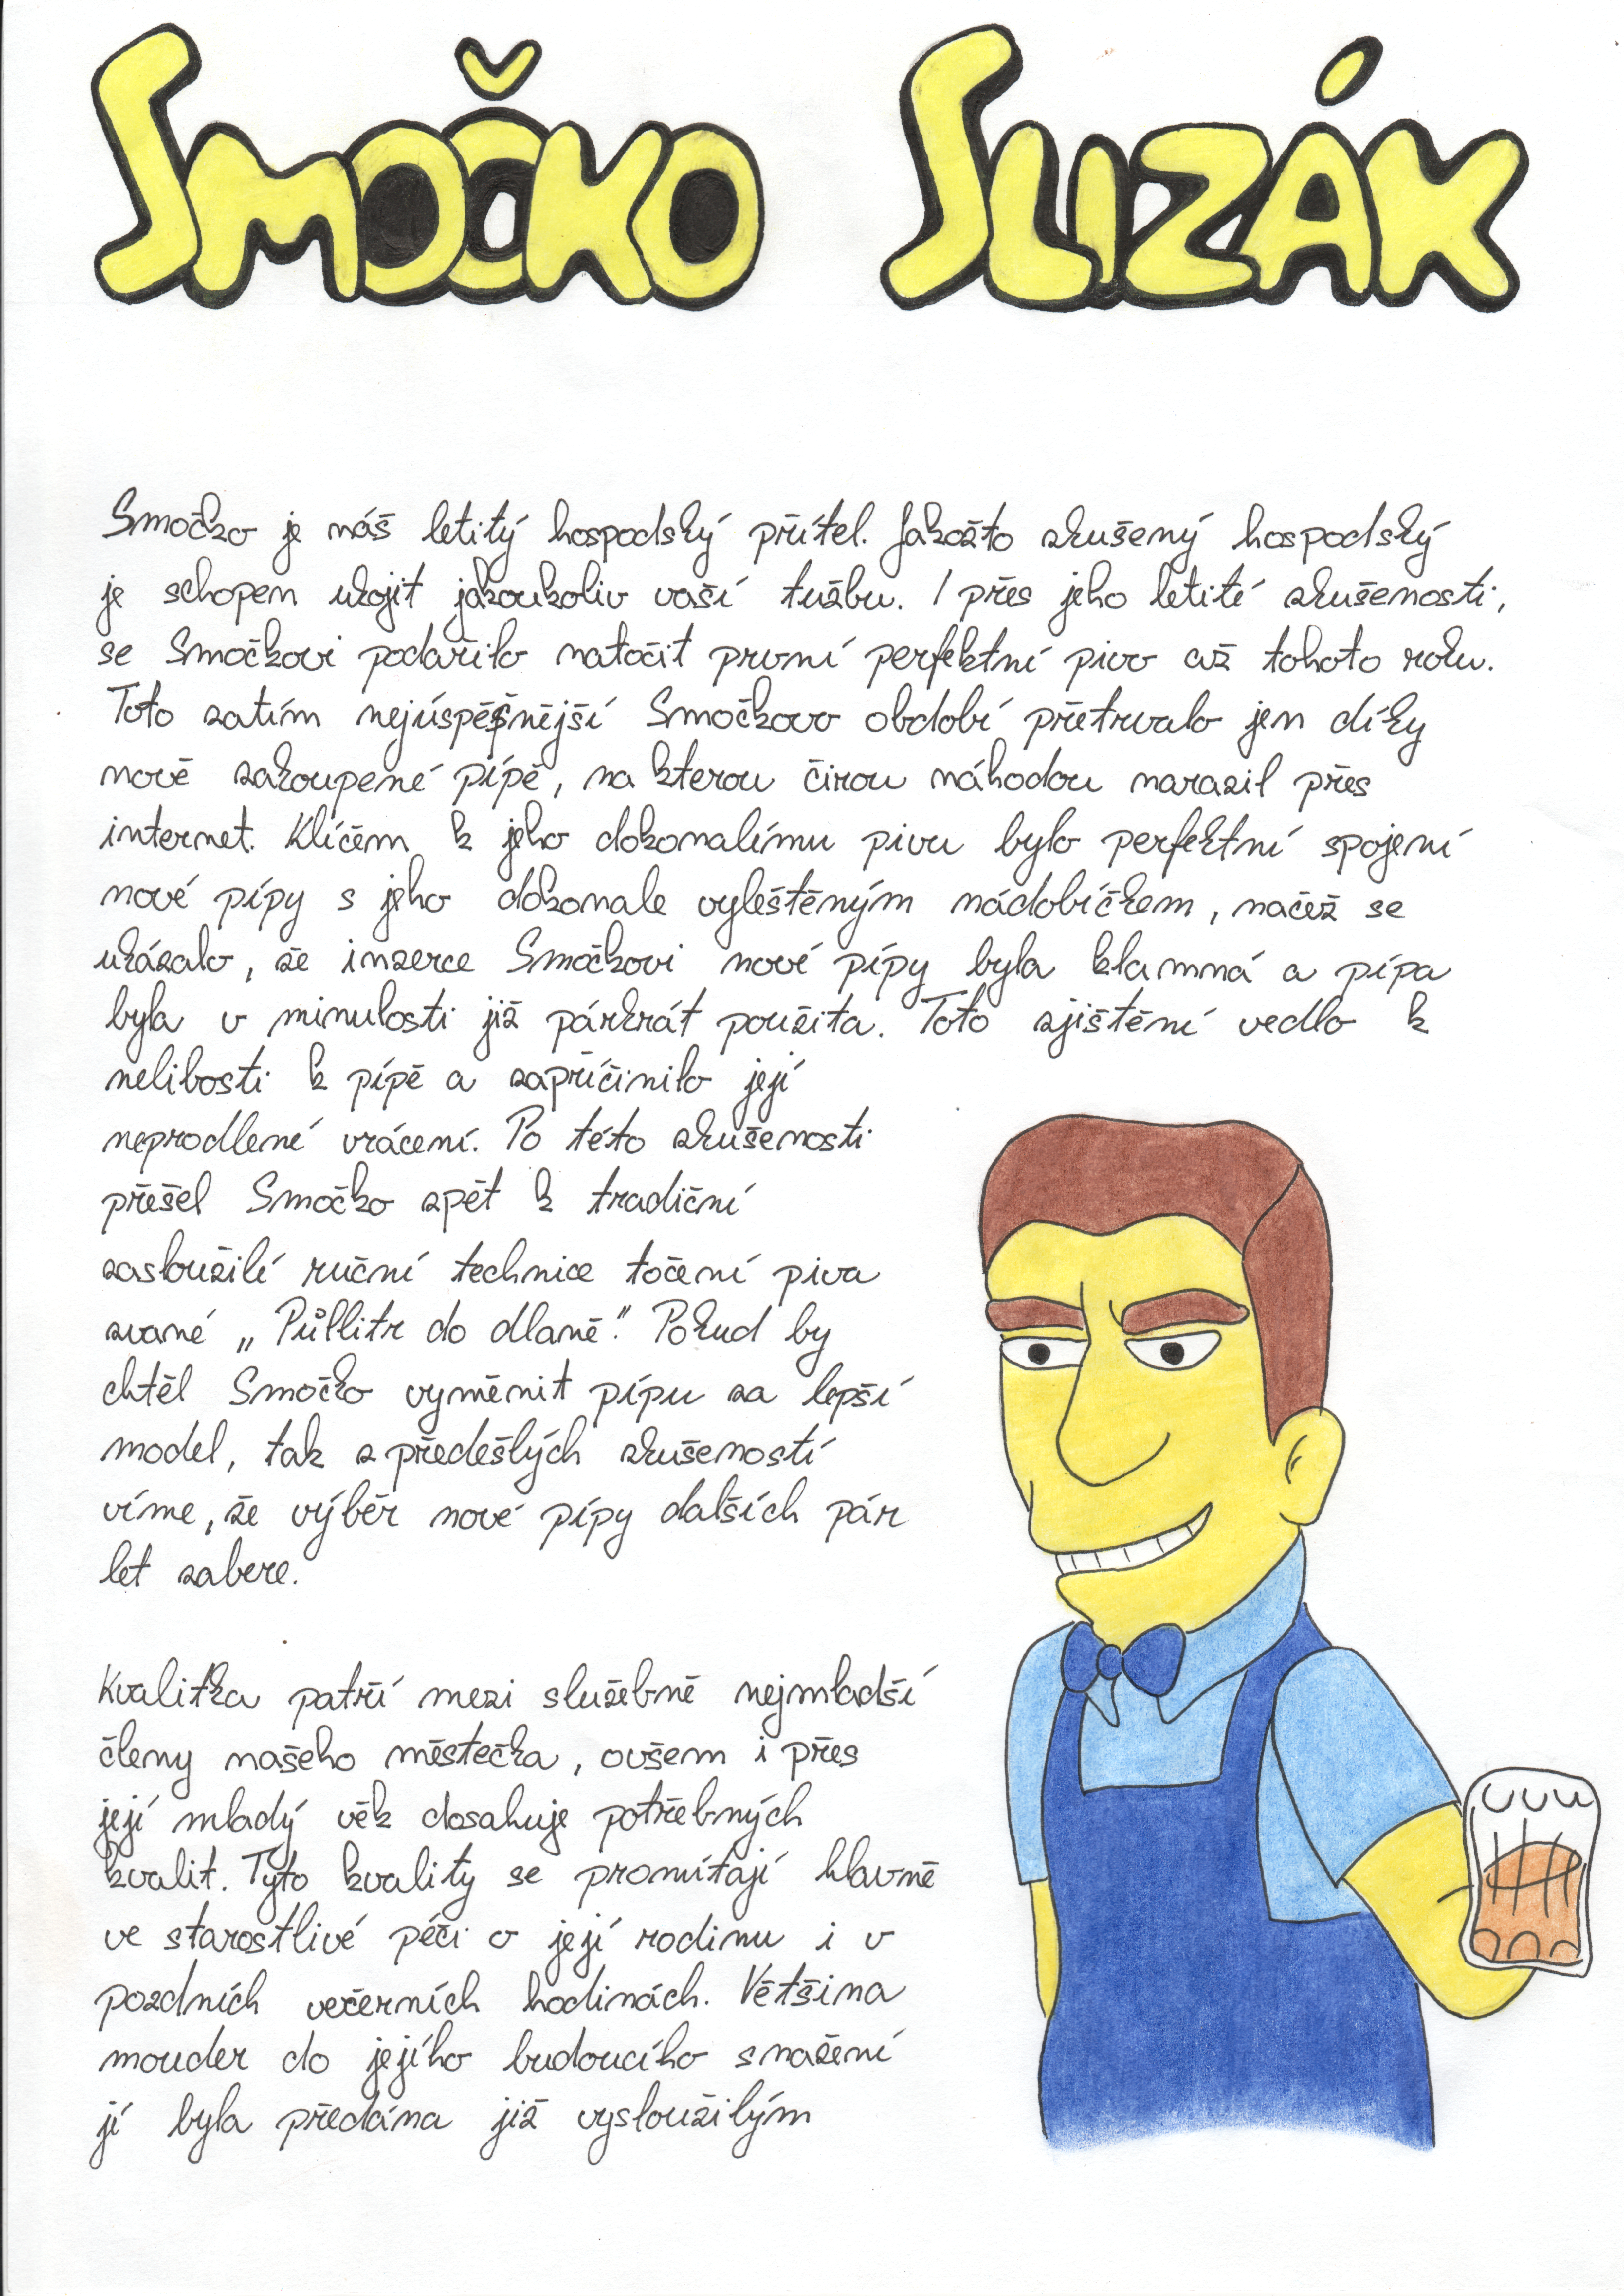 SMOČKO SLIZÁK
Smočko je náš letitý hospodský přítel. Jakožto zkušený hospodský
je schopen ukojit jakoukoliv vaší tužbu. I přes jeho letité zkušenosti,
se Smočkovi podařilo natočit první perfektní pivo až tohoto roku.
Toto zatím nejúspěšnější Smočkovo období přetrvalo jen díky
nově zakoupené pípě, na kterou čirou náhodou narazil přes
internet. Klíčem k jeho dokonalímu pivu bylo perfektní spojení
nové pípy s jeho dokonale vyleštěným nádobíčkem, načež se
ukázalo, že inzerce Smočkovi nové pípy byla klamná a pípa
byla v minulosti již párkrát použita. Toto zjištění vedlo k
nelibosti k pípě a zapříčinilo její
neprodlené vrácení. Po této zkušenosti
přešel Smočko zpět k tradiční
zasloužilé ruční technice točení piva
zvané „Půllitr do dlaně". Pokud by
chtěl Smočko vyměnit pípu za lepší
model, tak z předešlých zkušeností
víme, že výběr nové pípy dalších pár
let zabere.
Kvalitka patří mezi služebně nejmladší
členy našeho městečka, ovšem i přes
její mladý věk dosahuje potřebných
kvalit. Tyto kvality se promítají hlavně
ve starostlivé péči o její rodinu i v
pozdních večerních hodinách. Většina
mouder do jejího budoucího snažení
jí byla předána již vysloužilým